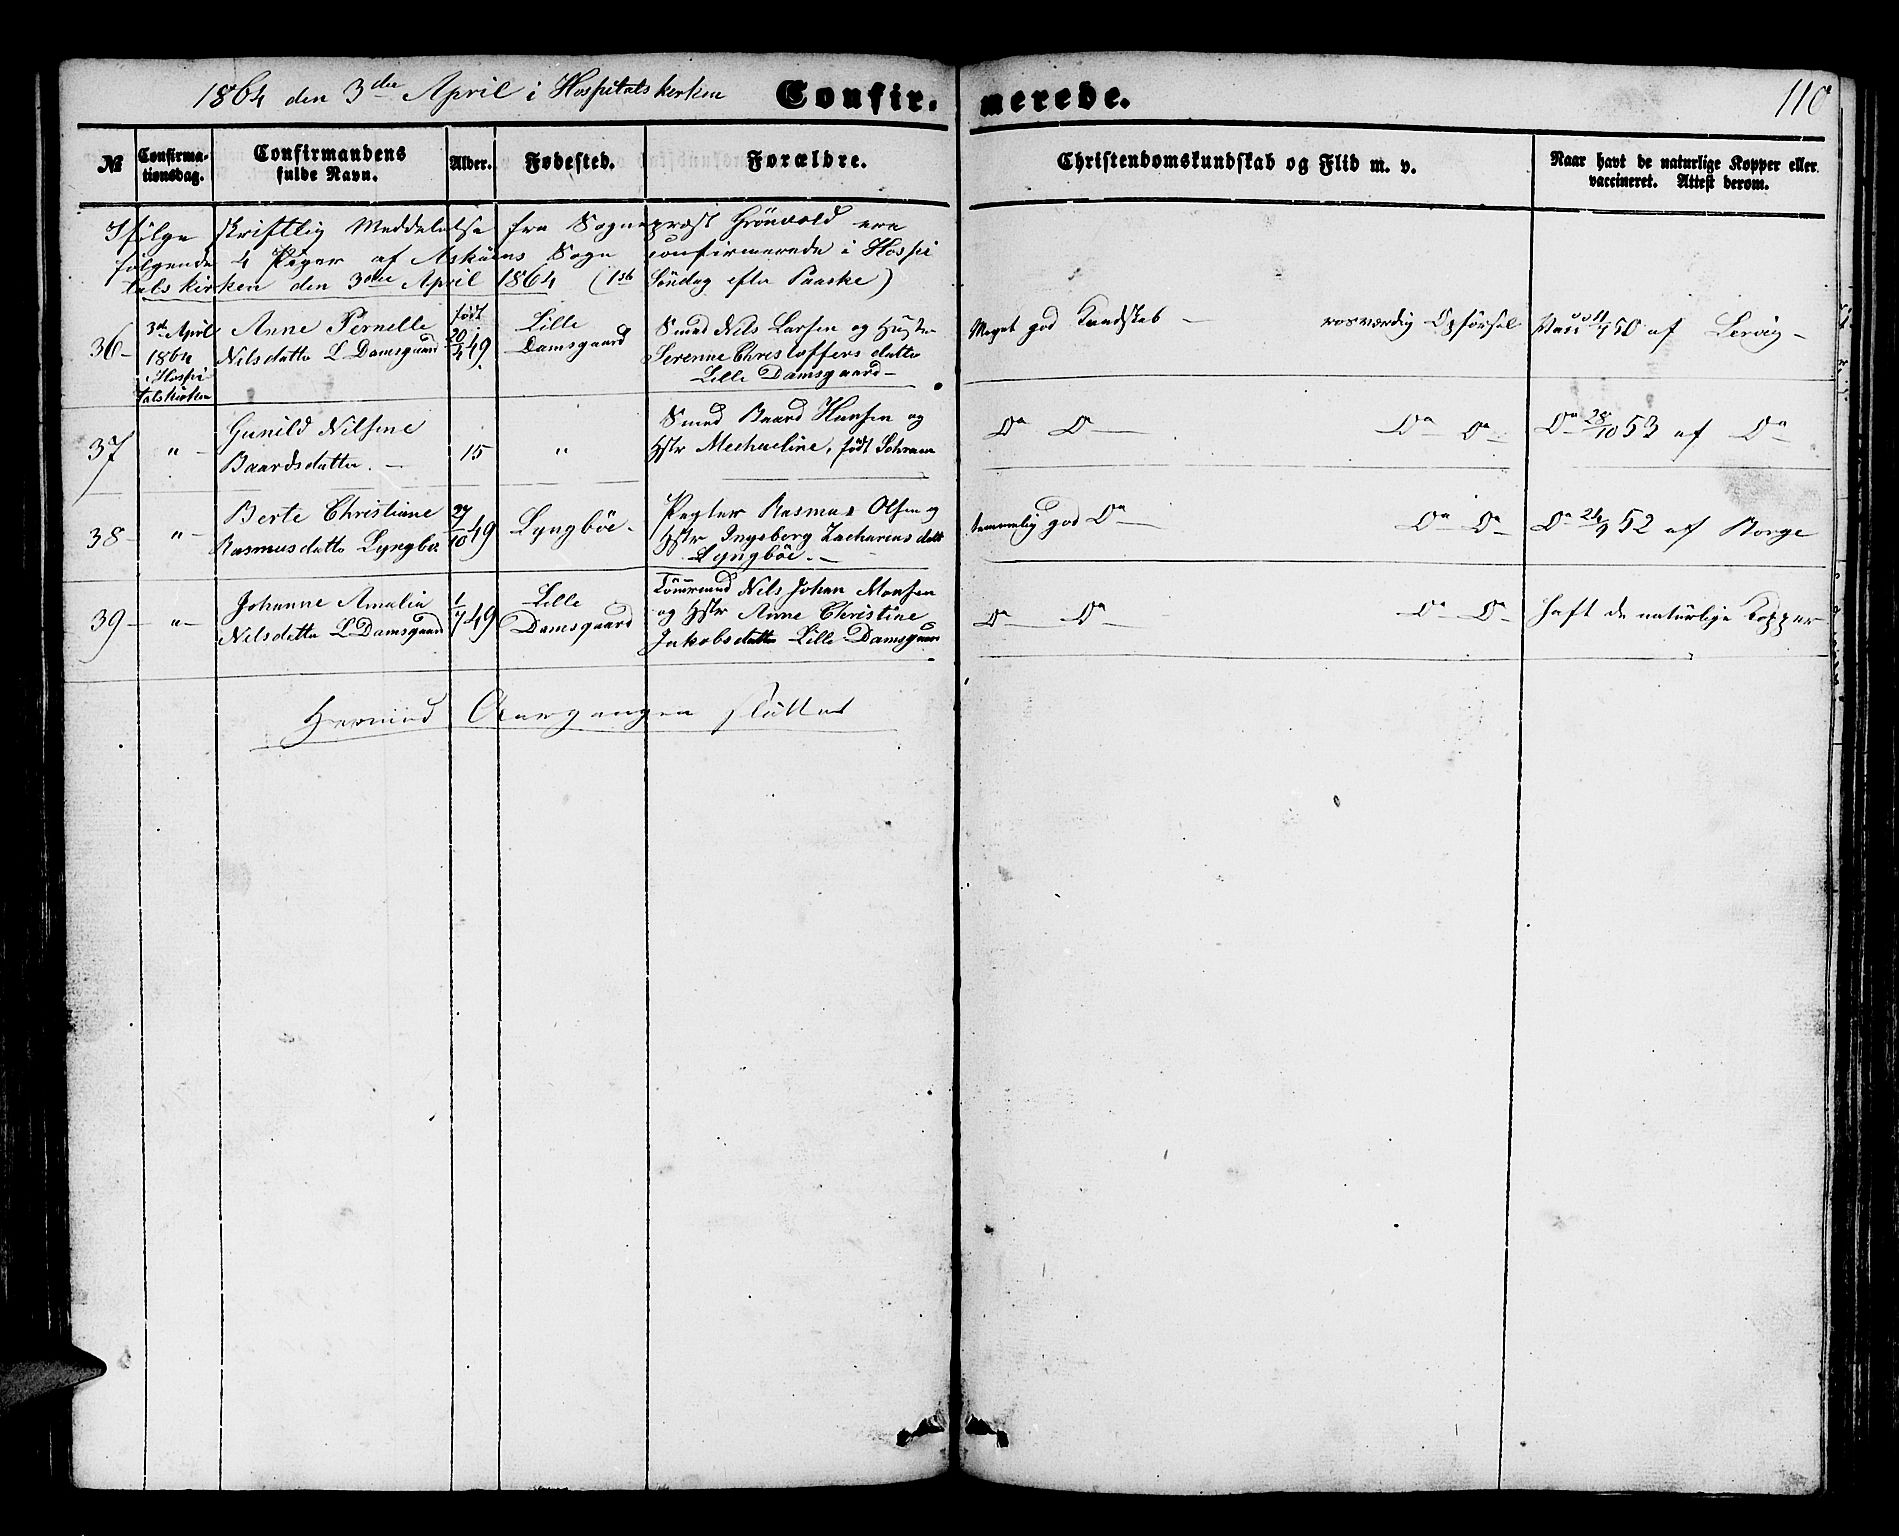 1864 den 3die April i Hospitalskirken Confir. merede. 110
№
Confirma-
tionsdag.
Confirmandens
fulde Navn.
Alder.
Fødested.
Forældre.
Christendomskundskab og Flid m. v.
Naar havt de naturlige Kopper eller
vaccineret. Attest derom.
Ifølge skriftlig Meddelelse fra Sogneprost Grönvold ere
følgende 4 Piger af Askøens Sogn confirmerede i Hospi
talskirken den 3die April 1864 (1st Søndag efter Paaske)
36-
3d April
1864
Hospi
talskirken
Anne Pernelle
Nilsdatter L Damsgaard
født
20/4 49
Lille
Damsgaard
Smed Nils Larsen og Hustr
Serenne Christoffersdatter
Lille Damsgaard-
Meget god Kundskab - rosværdig Opførsel
Vacc 50 af Lervig-
37
"-
Gunild Nilsine
Baardsdatter. -
15
"
Smed Baard Hansen og
Hstr Mechaeline, født
Do Do Do Do
Do 28/10 53 af Do
38-
"-
Berte Christiane
Rasmusdatter Lyngbø
27/10 49
Lyngböe-
Pagter Rasmus Olsen og
Hstr Ingeborg Zachariasdatt
Lyngböe. -
temmelig god Do Do Do
Do 24/9 52 af Borge
39-
"-
Johanne Amalia
Nilsdatter L Damsgaard
1/7 49
Lille
Damsgaard
Tömmermd Nils Johan Monsen
og Hstr Anne Christine
Jakobsdatter Lille Damsgaar
Do Do Do Do
haft de natürlige Kopper
Hermed Aargangen sluttet